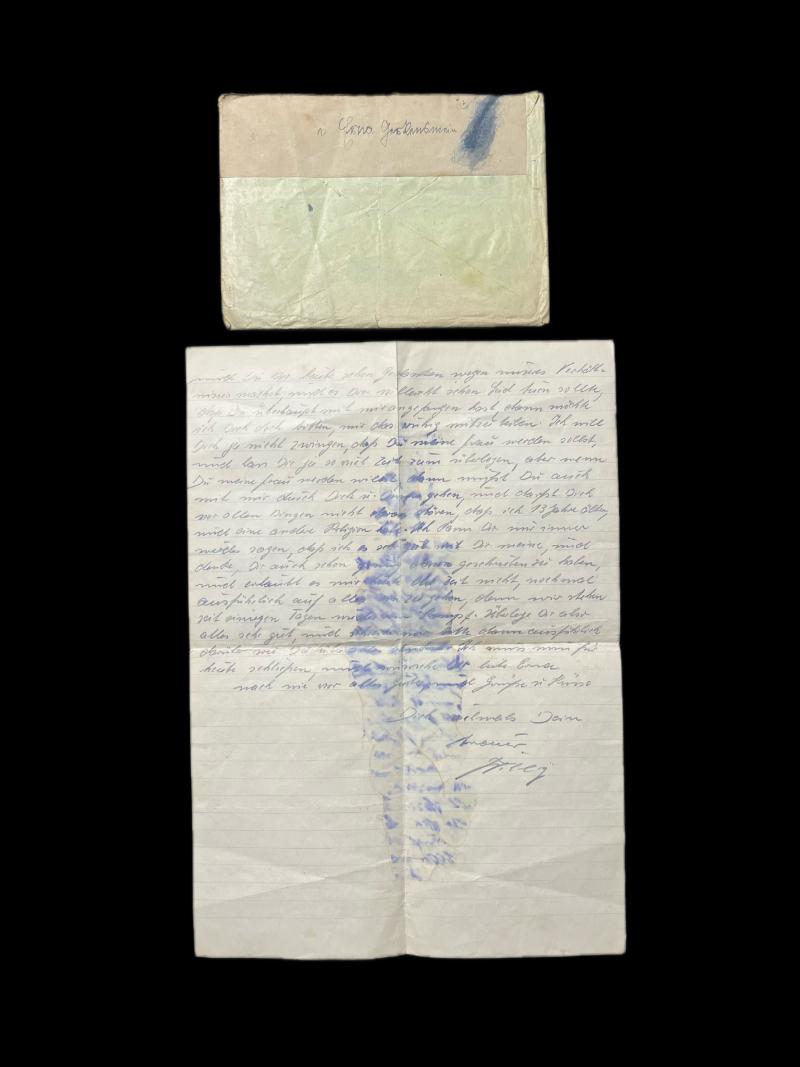 Erna Gerkensmein
heute schon Gedanken wegen unseres Verhält-
nisses machst, und es Dir vielleicht schon Leid tuen sollte,
daß Du überhaupt mit mir angefangen hast, dann möchte
ich Dich doch bitten, mir das ruhig mitzuteilen. Ich will
Dich ja nicht zwingen, daß Du meine Frau werden sollst,
und lass Dir ja so viel Zeit zum überlegen, aber wenn
Du meine Frau werden willst, dann mußt Du auch
mit mir durch Dick u. Dünn gehen, und darfst Dich
vor allen Dingen nicht daran stören, daß ich 13 Jahre älter,
und eine andere Religion habe. Ich kann Dir nur immer
wieder sagen, daß ich es sehr gut mit Dir meine, und
glaube, Dir auch schon davon geschrieben zu haben,
und erlaubt es mir heute die Zeit nicht, nochmal
ausführlich auf alles einzugehen, denn wir stehen
seit einigen Tagen wieder im Kampf. Überlege Dir aber
alles sehr gut, und schreibe mir bitte dann ausführlich
darüber wie Du Ich muss nun für
heute schließen, und wünsche Dir liebe Erna
nach wie vor alles Gute, und Grüße u. Küsse
Dich vielmals Dein
treuer
Willy